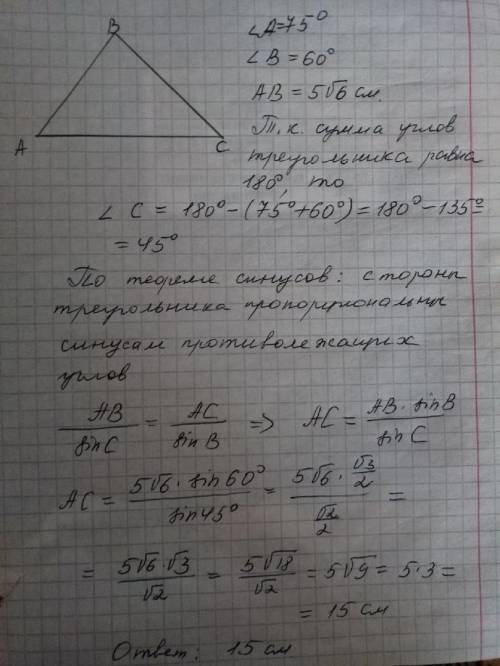 B
A
C
∠A=75°
∠B=60°
AB=5√6 см.
Т.к. сумма углов
треугольника равна
180°, то
∠ C = 180°-(75°+60°)=180°-135°=
=45°
По теореме синусов: стороны
треугольника пропорциональны
синусам противолежащих
углов
AB/sinC = AC/sinB => AC = AB·sinB/sinC
AC = 5√6·sin60°/sin45° = 5√6·√3/2/√2/2 =
= 5√6·√3/√2 = 5√18/√2 = 5√9 = 5·3 =
= 15 см
Ответ: 15 см